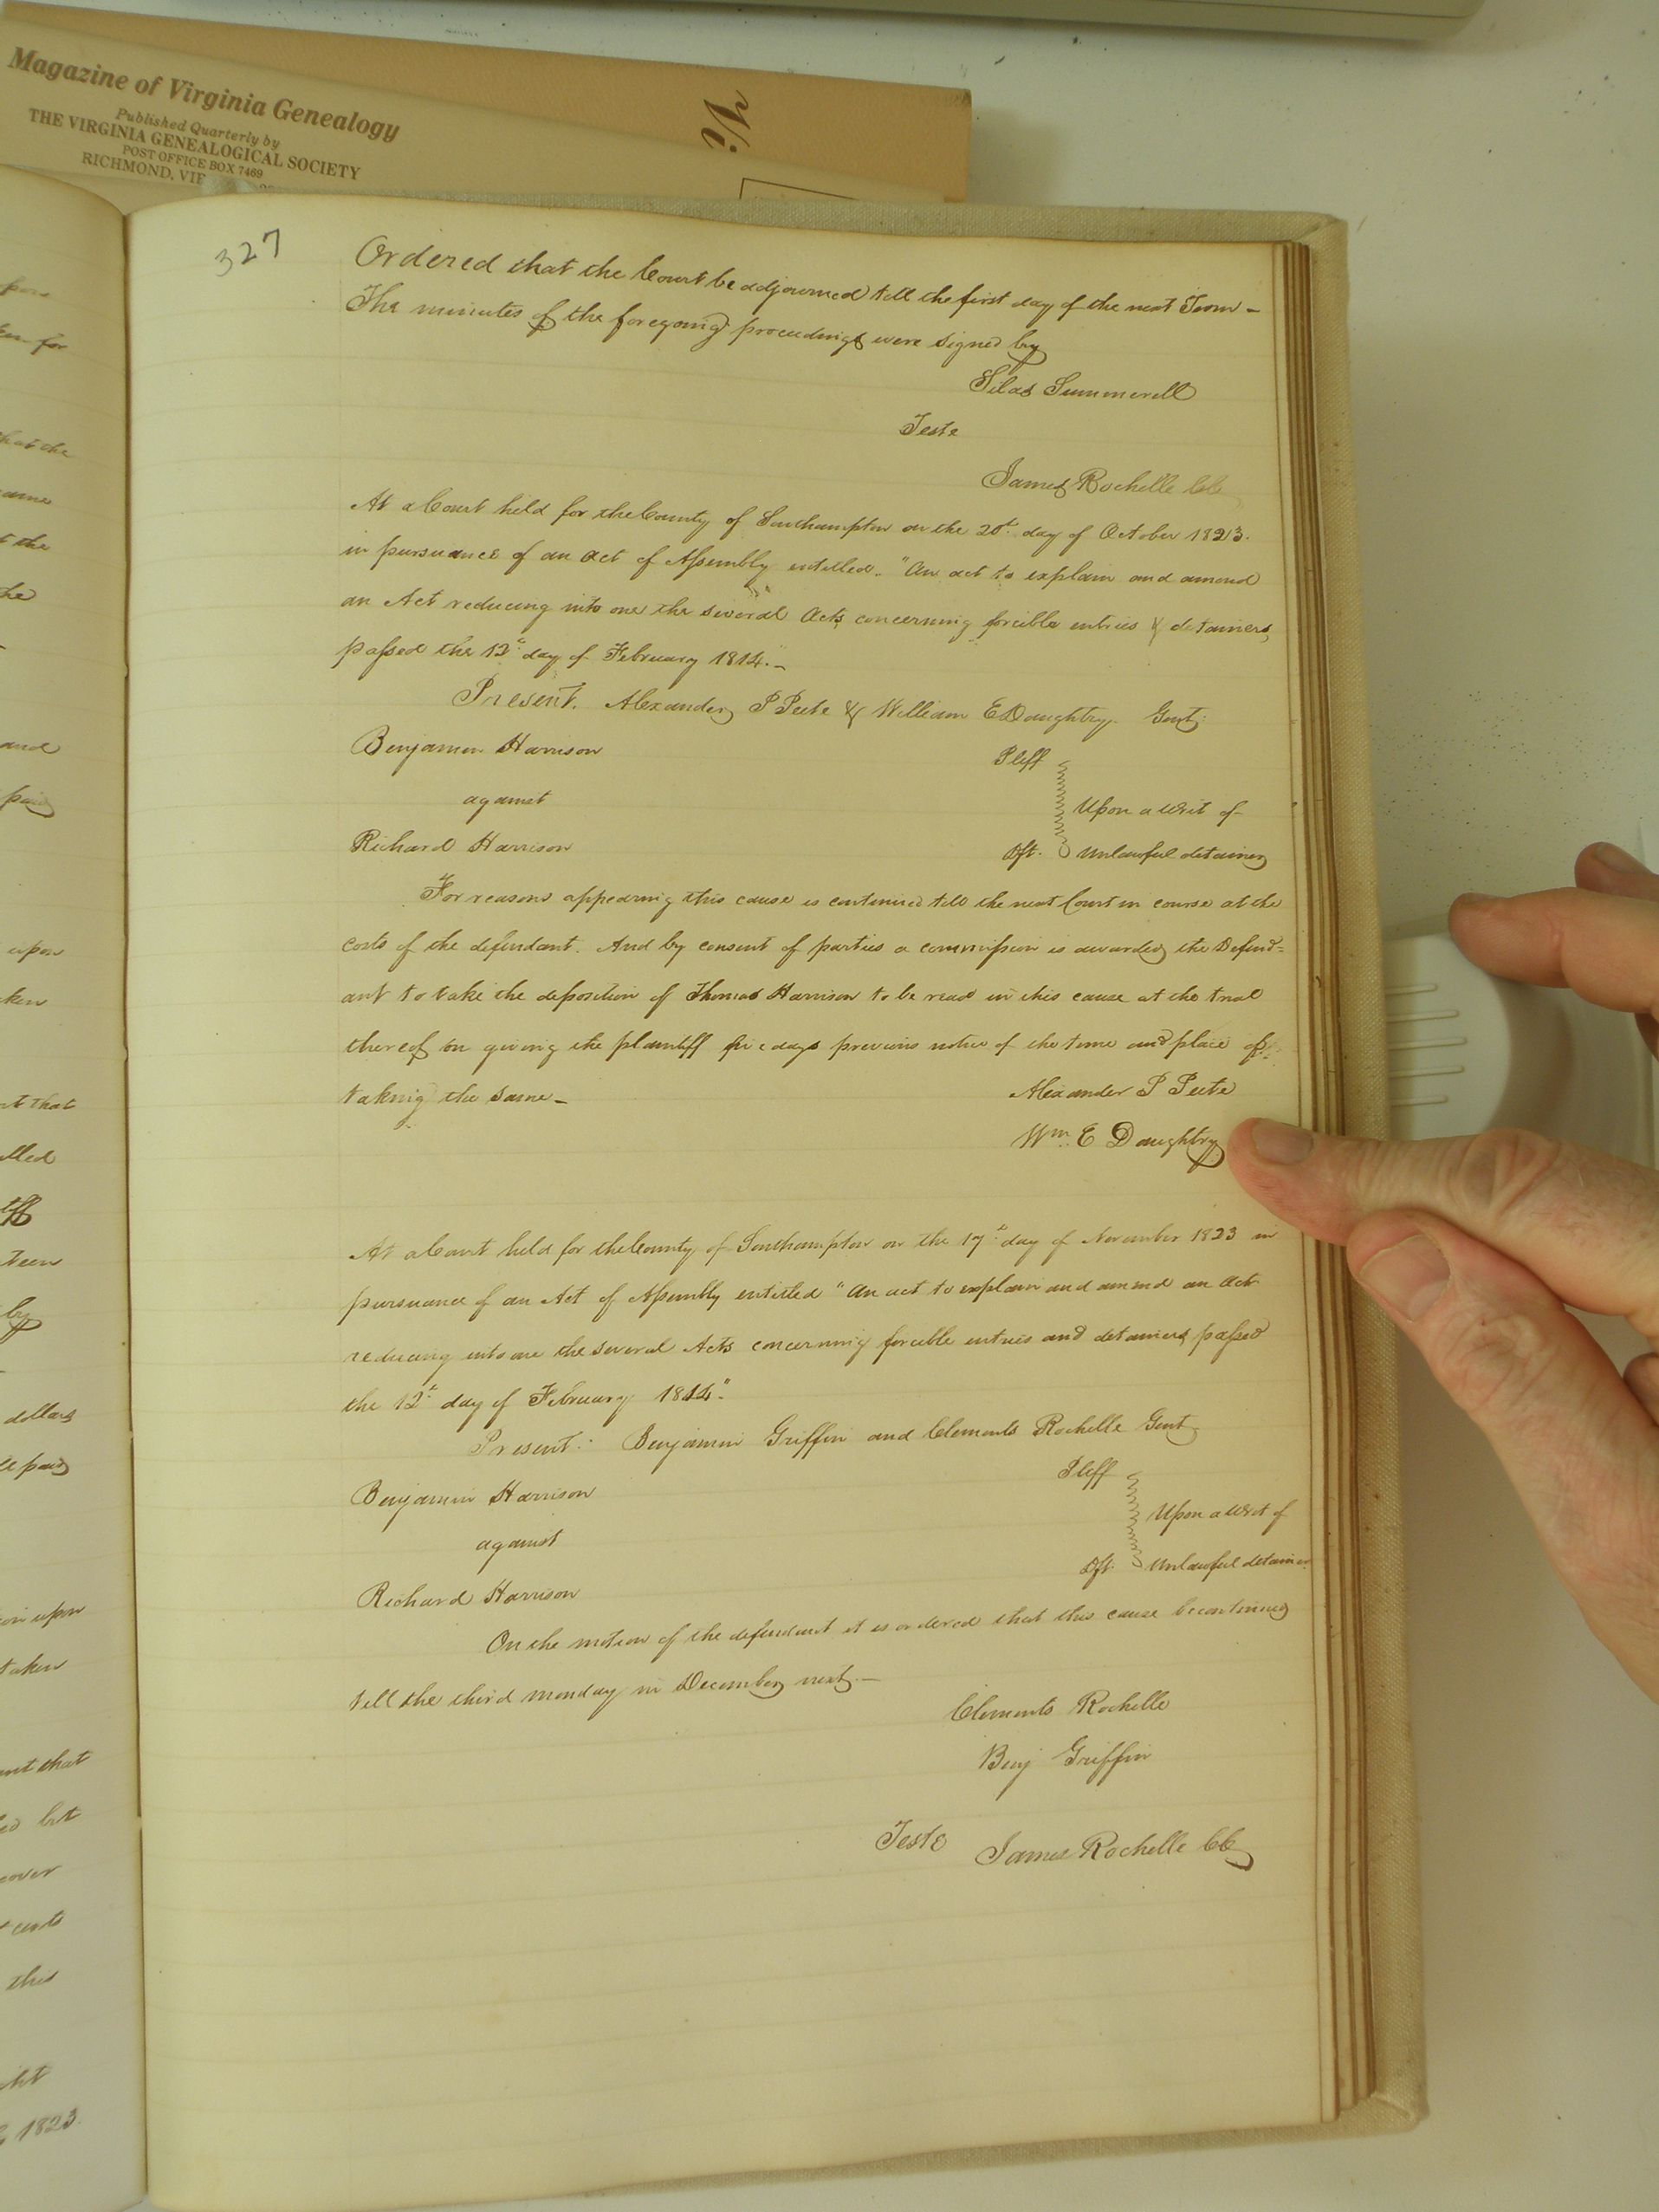 Magazine of Virginia Genealogy
Published Quarterly by
THE VIRGINIA GENEALOGICAL SOCIETY
POST OFFICE BOX 7469
RICHMOND, VIR
327
Ordered that the Court be adjourned till the first day of the next Term -
The minutes of the foregoing proceedings were signed by
Silas Summerell
Teste
James Rochelle CC
At a Court held for the County of Southampton on the 20t. day of October 1823.
in pursuance of an act of Assembly entitled. "An act to explain and amend
an Act reducing into one the several Acts concerning forcible entries & detainers,
passed the 12t. day of February 1814." -
Present. Alexander P Peete & William E Daughtry. Gent.
Benjamin Harrison Pleff
against Upon a Writ of
Richard Harrison Dft. Unlawful detainer
For reasons appearing this cause is continued till the next Court in course at the
costs of the defendant. And by consent of parties a commission is awarded the Defend=
ant to take the deposition of Thomas Harrison to be read in this cause at the trial
thereof on giving the plaintiff five days previous notice of the time and place of
taking the same -
Alexander P Peete
Wm. E Daughtry
At a Court held for the County of Southampton on the 17t. day of November 1823 in
pursuance of an Act of Assembly entitled "An act to explain and amend an Act
reducing into one the several Acts concerning forcible entries and detainers, passed
the 12t. day of February 1814."
Present. Benjamin Griffin and Clements Rochelle Gent.
Benjamin Harrison Pleff
against Upon a Writ of
Richard Harrison Dft. Unlawful detainer
On the motion of the defendant it is ordered that this cause be continued
till the third Monday in December next. -
Clements Rochelle
Benj Griffin
Teste James Rochelle CC